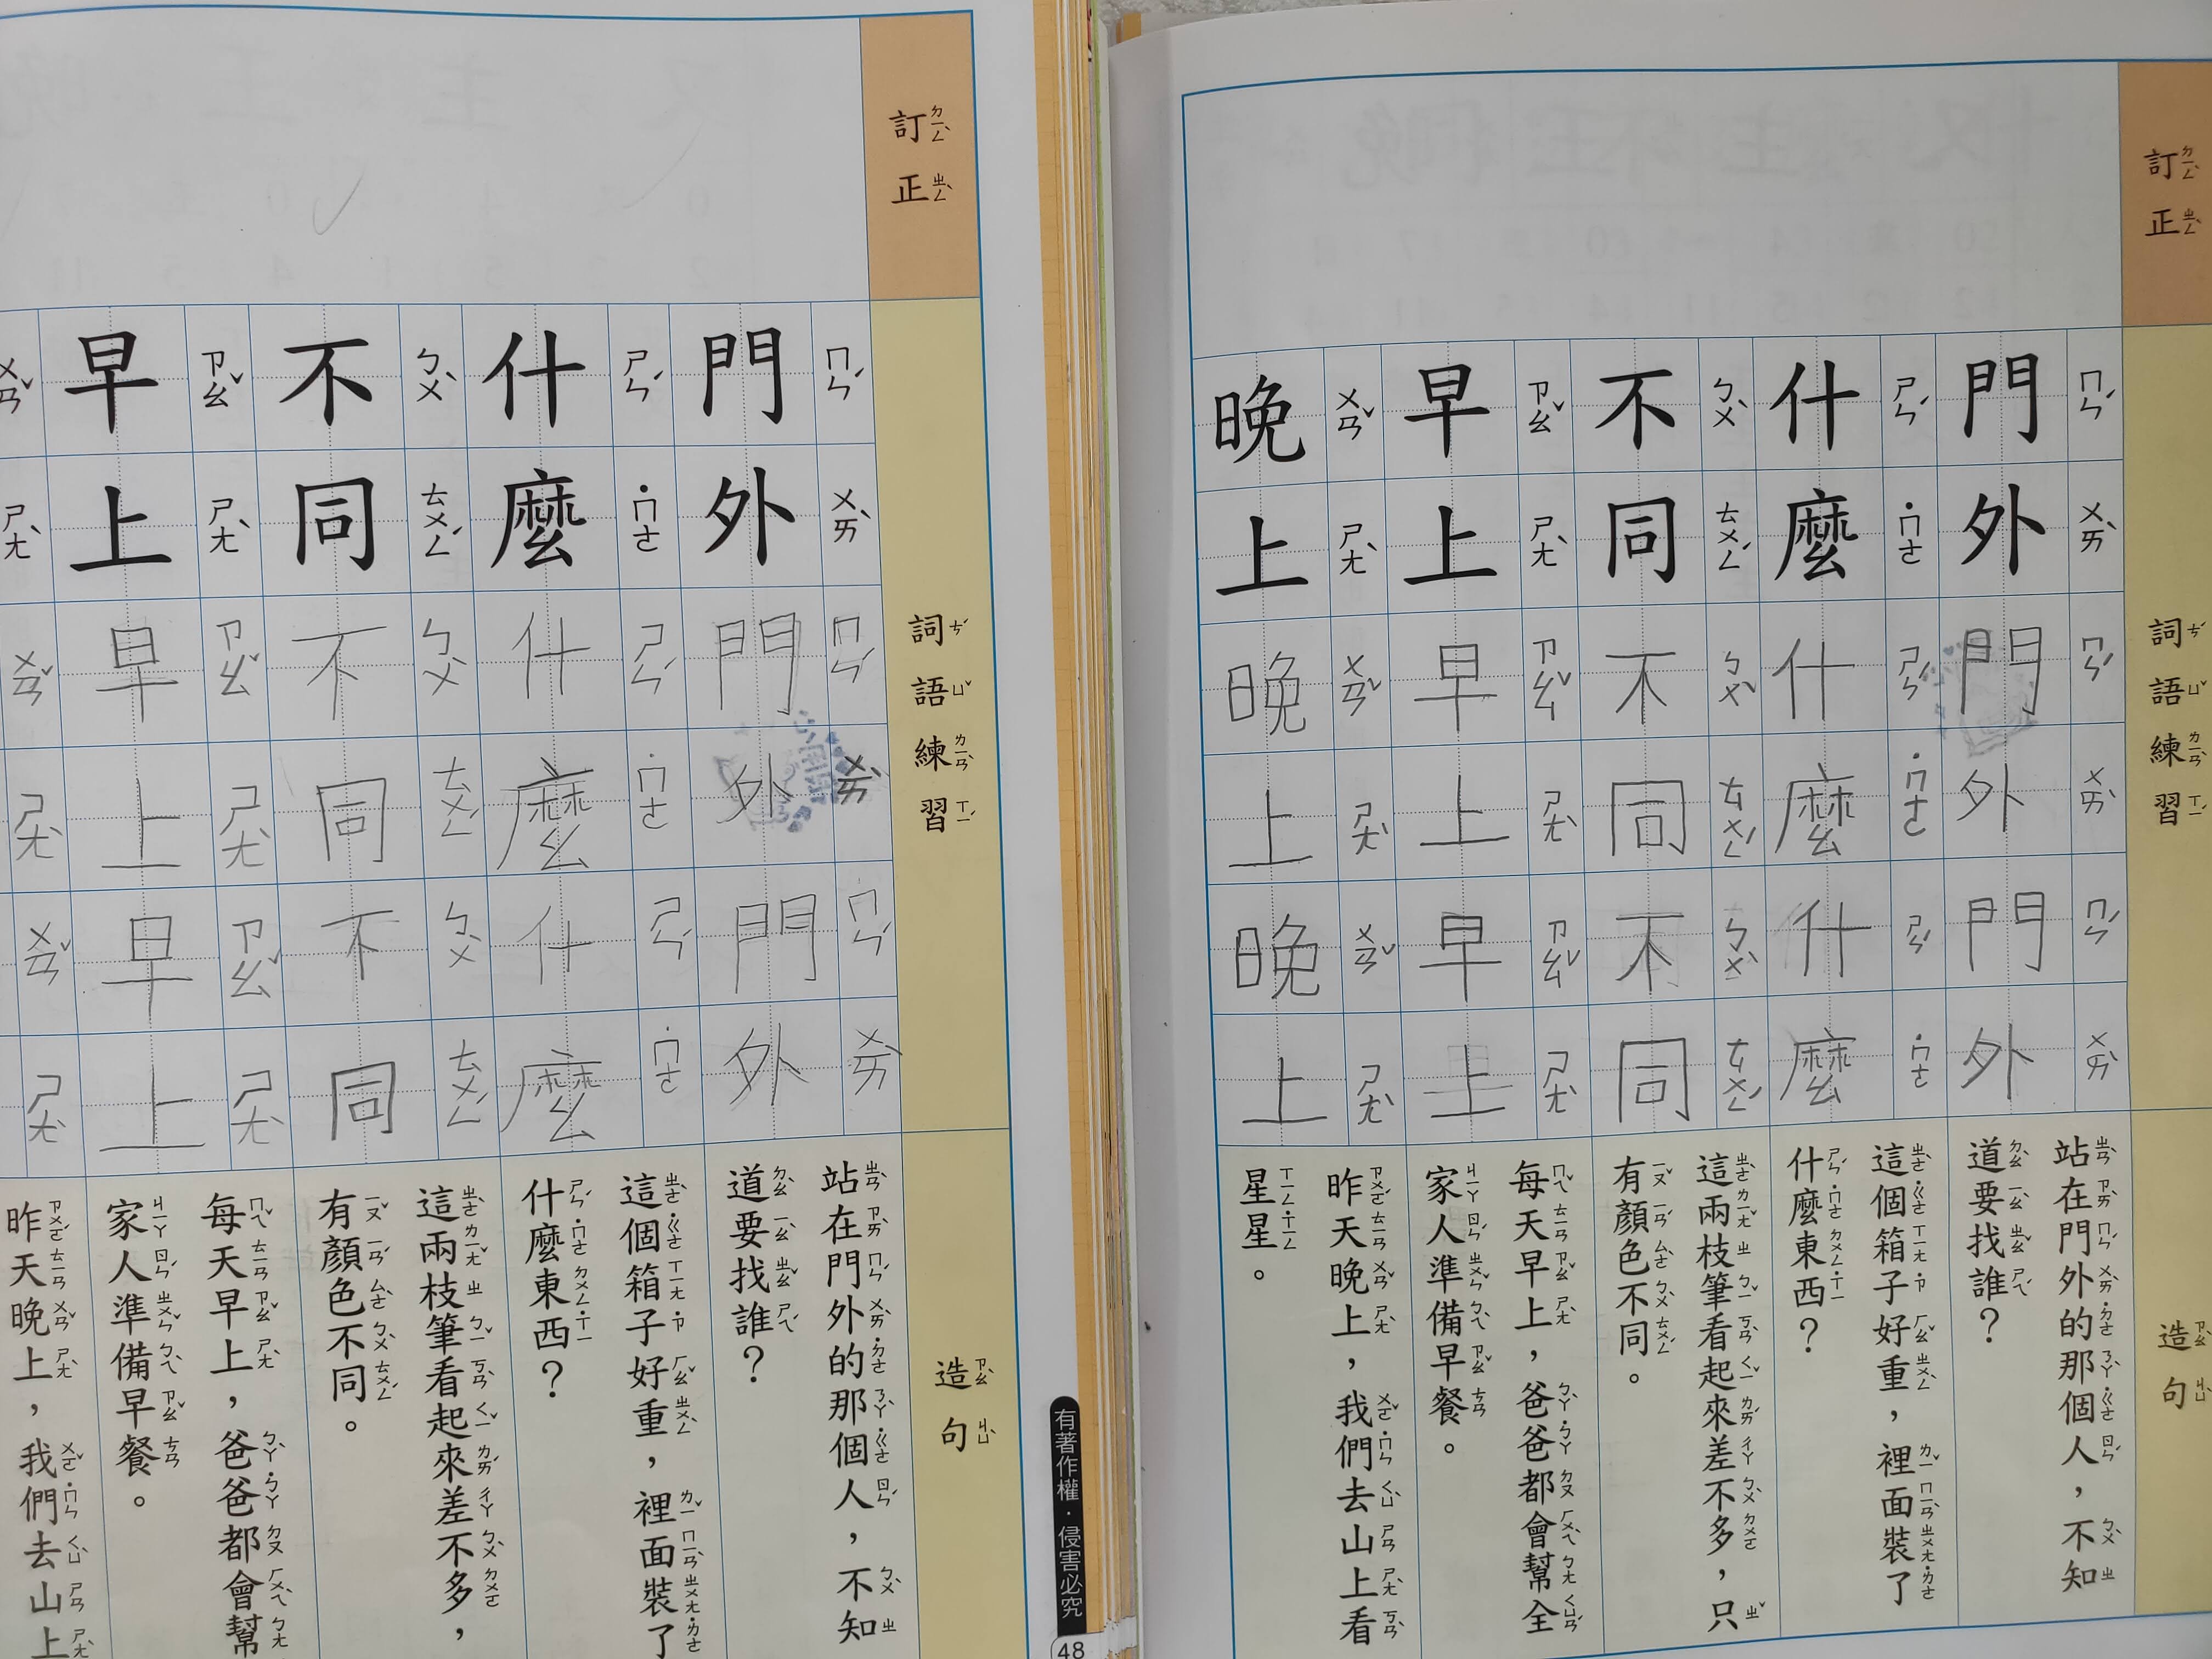 訂正
詞語練習
造句
門外
門外
門外
站在門外的那個人，不知
道要找誰？
什麼
什麼
什麼
這個箱子好重，裡面裝了
什麼東西？
不同
不同
不同
這兩枝筆看起來差不多，只
有顏色不同。
早上
早上
早上
每天早上，爸爸都會幫全
家人準備早餐。
晚上
晚上
晚上
昨天晚上，我們去山上看
星星。
有著作權・侵害必究
48
訂正
詞語練習
造句
門外
門外
門外
站在門外的那個人，不知
道要找誰？
什麼
什麼
什麼
這個箱子好重，裡面裝了
什麼東西？
不同
不同
不同
這兩枝筆看起來差不多，
有顏色不同。
早上
早上
早上
每天早上，爸爸都會幫
家人準備早餐。
昨天晚上，我們去山上